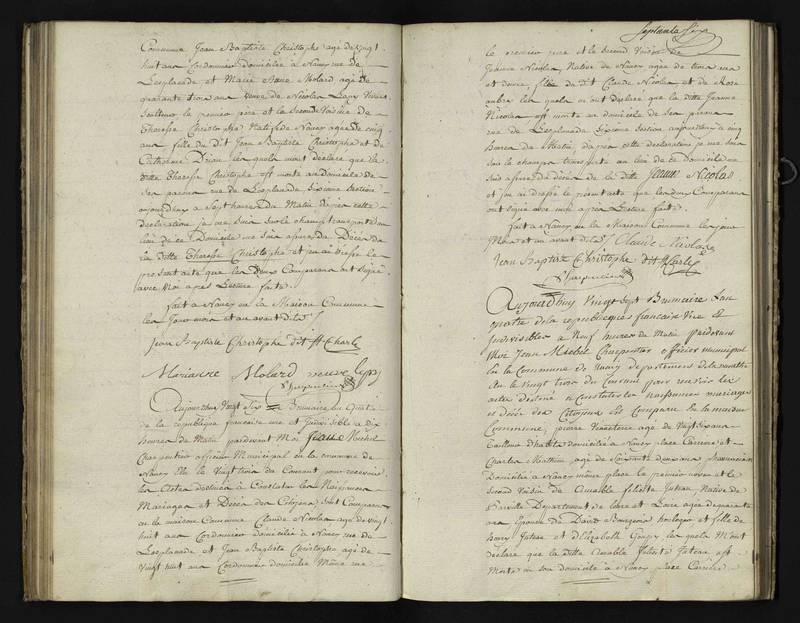 Commune Jean Baptiste Christophe agé de vingt
huit ans Cordonnier domicilié à Nancy rue de
Lesplanade et Marie Anne Molard agée de
quarante trois ans veuve de Nicolas Lapy
le premier père et la Seconde Voisine de
Therese Christophe Native de Nancy agée de cinq
ans fille du dit Jean Baptiste Christophe et de
Catherine les quels m'ont déclaré que la
ditte Therese Christophe est morte au Domicile de
Ses parens rue de Lesplanade Sixieme Section
aujourdhuy a Sept heures du Matin Dapres cette
declaration je me Suis Sur le champ transporté au
lieu de ce Domicile me Suis assuré du Décès de
la ditte Therese Christophe et j'en ai dressé le
present acte que les Deux Comparans ont Signé
avec Moi apres Lecture faite
fait a Nancy en la Maison Commune
les Jour mois et an avant dits
Jean Baptiste Christophe dit St Charle
Marianne Molard veuve lapy
Charpentier
Aujourdhuy Vingt Six Brumaire an Quatre
de la republique francaise une et Indivisible a dix
heures du Matin pardevant Moi Jean Michel
Charpentier officier Municipal en la commune de
Nancy Elu le Vingt trois du Courant pour recevoir
les Actes destinés a Constater les Naissances
Mariages et Décès des Citoyens Sont Comparus
en la maison Commune Claude Nicolas agé de vingt
huit ans Cordonnier domicilié à Nancy rue de
Lesplanade et Jean Baptiste Christophe agé de
Vingt huit ans Cordonnier domicilié Même rue
Septante Six
le premier pere et le Second Voisin de
Jeanne Nicolas, Native de Nancy agée de trois ans
et demie, fille du dit Claude Nicolas et de Rose
les quels m'ont déclaré que la ditte Jeanne
Nicolas est morte au domicile de Ses parens
rue de Lesplanade Sixieme Section aujourdhuy a cinq
heures du Matin, Dapres cette déclaration je me Suis
Sur le champ transporté au lieu de ce Domicile me
Suis assuré du décès de la ditte Jeanne Nicolas
et j'en ai dressé le présent acte que les deux Comparans
ont Signé avec moi après Lecture faite.
fait a Nancy en la Maison Commune les jour
Mois et an avant dits Claude Nicolas
Jean Baptiste Christophe dit St Charle
Charpentier
Aujourdhuy Vingt Sept Brumaire Lan
quatre de la republique francaise Une et
Indivisible a Neuf heures du Matin pardevant
Moi Jean Michel Charpentier officier municipal
En la Commune de Nancy departement de la meurthe
élu le vingt trois du Courant pour recevoir les
actes destiné a Constater les Naissances mariages
et Décès des Citoyens Est Comparu En la maison
Commune, pierre agé de Vingt Six ans
Tailleur d'habits domicilié a Nancy place Carriere et
Charles Mathieu agé de Soixante Deux ans
Domicilié a Nancy même place le premier et le
Second Voisin de Aimable felicité Juteau, Native de
Departement de Loire agée de quarante
ans Epouse de David Bourgeois horloger et fille de
Juteau et d'Elizabeth les quels M'ont
declaré que la ditte Aimable felicité Juteau est
Morte en Son domicile a Nancy place Carriere